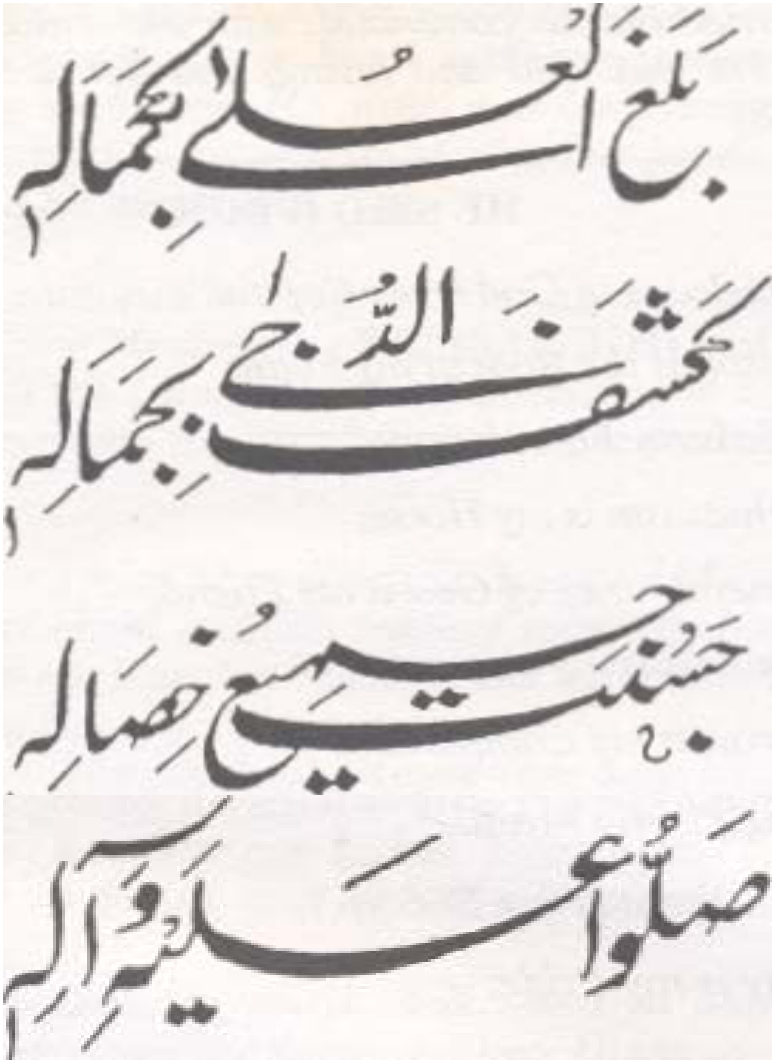 بَلَغَ الْعُلےٰ بِكَمَالِهٖ
كَشَفَ الدُّجےٰ بِجَمَالِهٖ
حَسُنَتْ جَمِيْعُ خِصَالِهٖ
صَلُّوْا عَلَيْهِ وَآلِهٖ